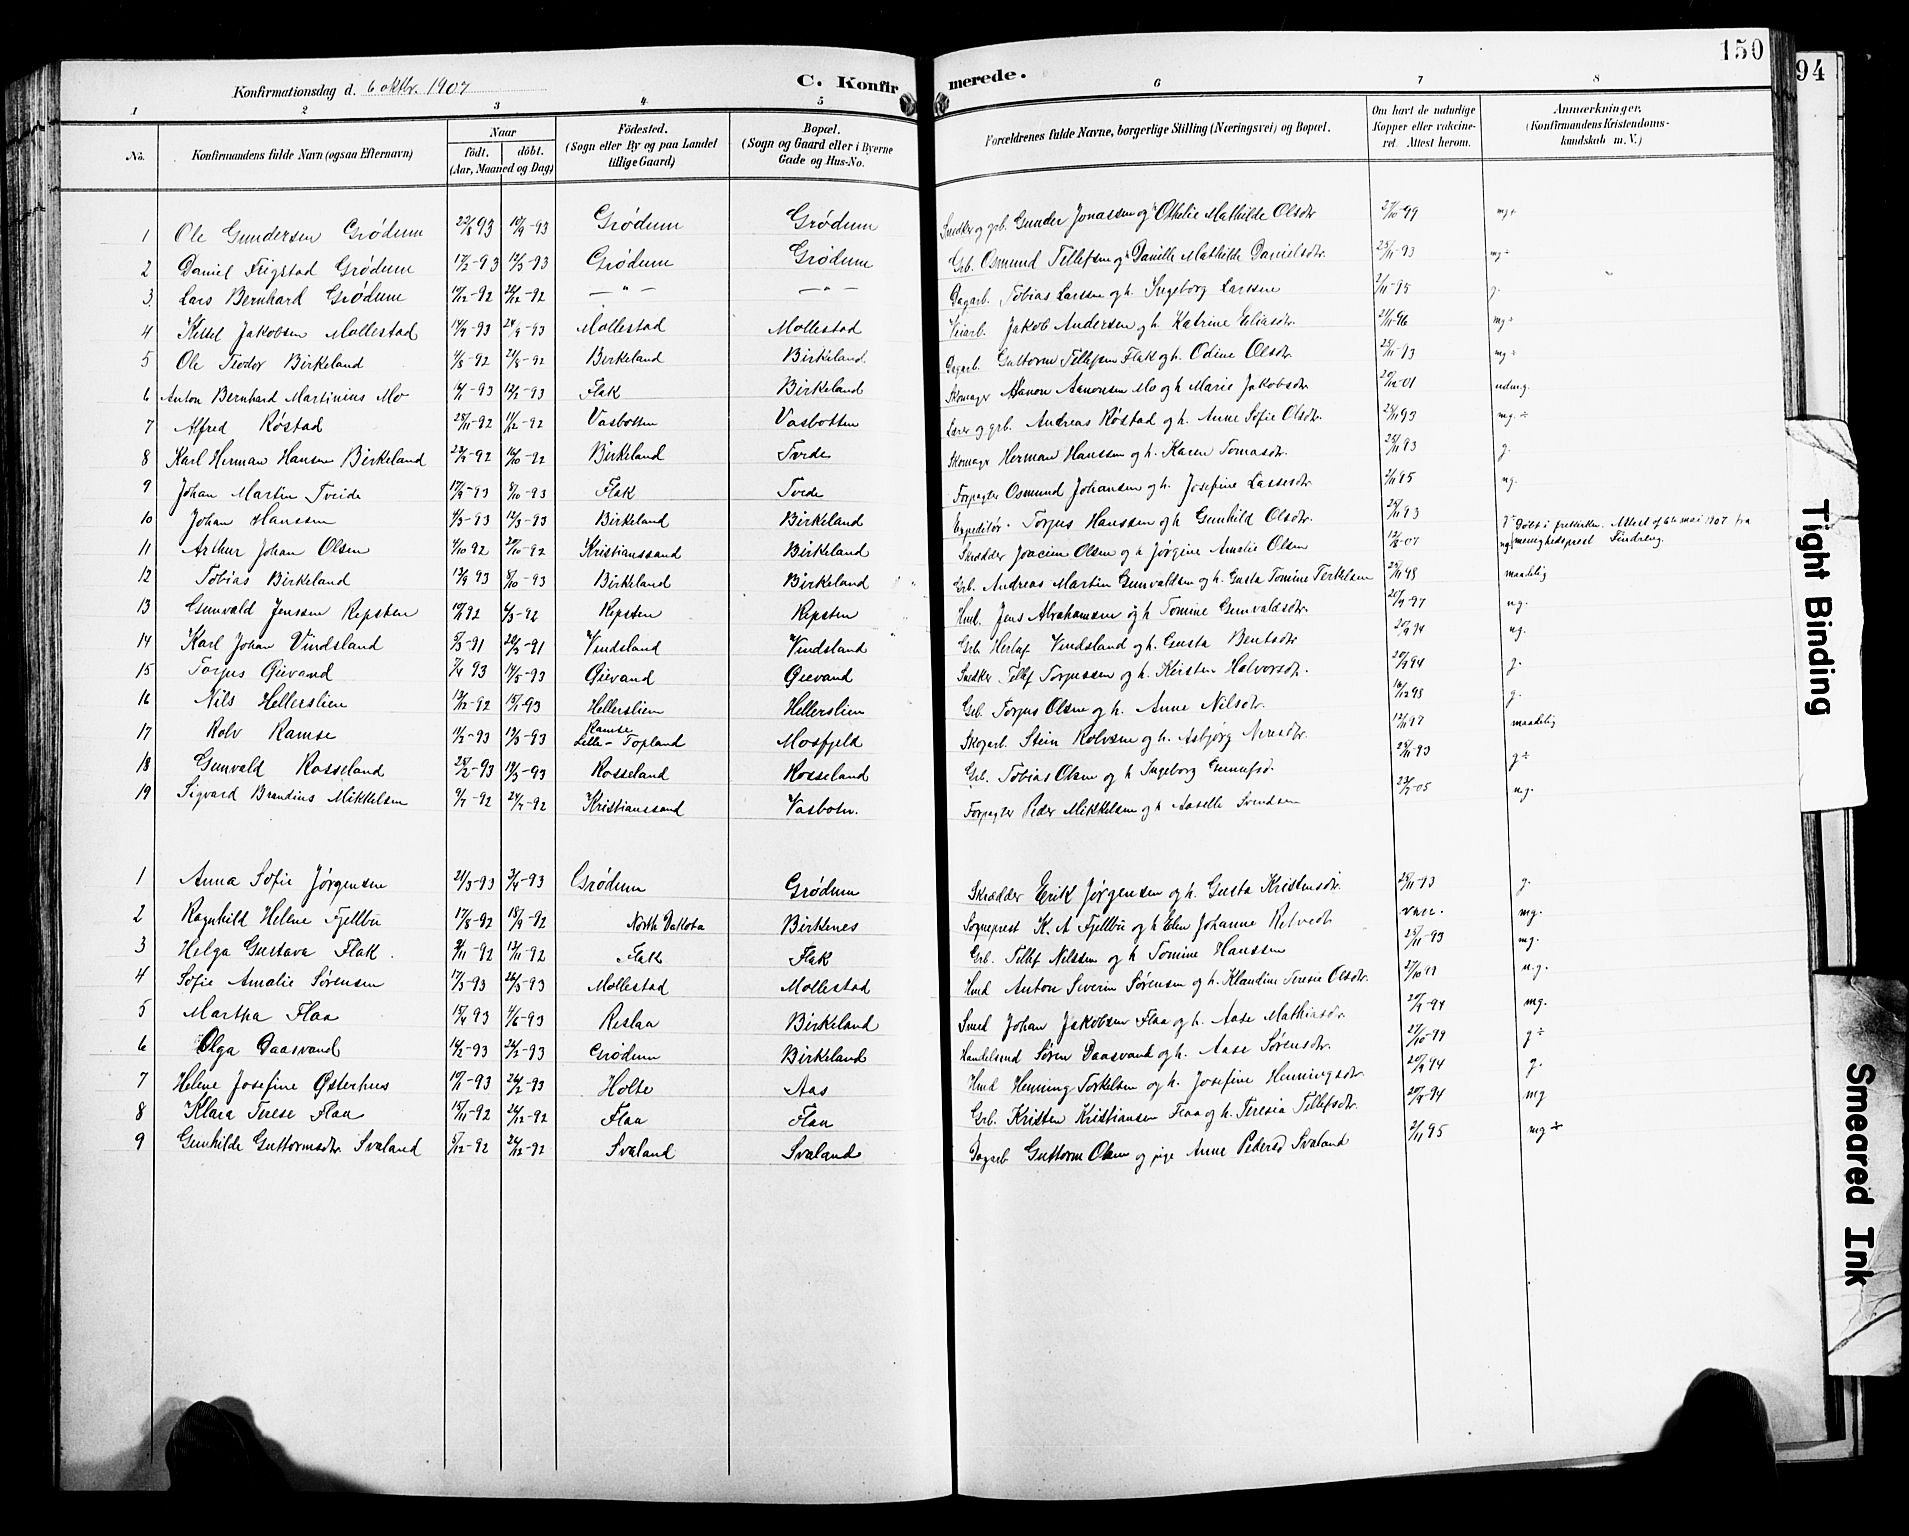 150
94
Konfirmationsdag d. 6 oktbr. 1907
C. Konfirmerede.
1 2 3 4 5 6 7 8
No. Konfirmandens fulde Navn (ogsaa Efternavn) Naar født. døbt. (Aar, Maaned og Dag) Fødested. (Sogn eller By og paa Landet tillige Gaard) Bopæl. (Sogn og Gaard eller i Byerne Gade og Hus-No. Forældrenes fulde Navne, borgerlige Stilling (Næringsvei) og Bopæl. Om havt de naturlige Kopper eller vakcineret. Attest herom. Anmærkninger. (Konfirmandens Kristendomskundskab m. V.)
1 Ole Gundersen Grødum 22/8 93 10/9-93 Grødum Grødum Snedker og grb. Gunder Jonassen og h Othelie Mathilde Olsdtr 27/10-99 mg+
2 Daniel Frigstad Grødum 17/2-93 12/3-93 Grødum Grødum Grb. Osmund Tellefsen og h Danille Mathilde Danielsdtr. 25/11-93 mg÷
3. Lars Bernhard Grødum 10/12-92 26/12-92 — " — — " — Dagarb. Tobias Larssen og h. Ingeborg Larssen 2/11-95 g.
4 Kittel Jakobsen Mollestad 14/9-93 24/9-93 Mollestad Mollestad Veiarb. Jakob Andersen og h. Katrine Eliasdtr. 21/11-96 mg÷
5 Ole Teodor Birkeland 1/8-92 21/8-92 Birkeland Birkeland Dagarb. Guttorm Tellefsen Flak og h. Odine Olsdtr. 25/11-93 mg÷
6 Anton Bernhard Martinius Mo 14/1-93 12/2-93 Flak Birkeland Skomager Aanon Aanonsen Mo og h Marie Jakobsdtr. 20/12-01 udm.g.
7 Alfred Røstad 28/11-92 11/12-92 Vasbotten Vasbotten Lærer og grb. Andreas Røstad og h. Anne Sofie Olsdtr. 25/11 93 mg. ÷
8 Karl Herman Hansen Birkeland 22/9-92 16/10-92 Birkeland Tvede Skomager Herman Hanssen og h. Karen Tomasdtr. 25/11 93 g.
9 Johan Martin Tveide 17/9-93 8/10-93 Flak Tvede Forpagter Osmund Johansen og h. Josefine Lassesdtr. 2/11 95 ng.
10 Johan Hanssen 4/3-93 12/3-93 Birkeland Birkeland Expeditør. Torjus Hanssen og h Gunhild Olsdtr. 25/11 93
11 Arthur Johan Olsen 4/10 92 20/10-92 Kristianssand Birkeland Skrædder Joacim Olsen og h Jørgine Amalie Olsen 12/8-07 ng Døbt i frikirken. Attest af 6te mai 1907 fra menighedsprest Sindreng
12 Tobias Birkeland 13/9 93 8/10-93 Birkeland Birkeland Grb. Andreas Martin Gunvaldsen og h. Gusta Tomine Terkelsen 25/11 98 maadelig
13 Gunvald Jenssen Repsten 10/1 92 6/3-92 Repsten Repsten Hmd. Jens Abrahamsen og h Tomine Gunvaldsdtr. 20/9-97 ng.
14 Karl Johan Vindsland 5/3-91 20/3-91 Vindsland Vindsland Grb Herlof Vindsland og h Gusta Bentsdtr 20/9 94 ng.
15 Torjus Øievand 7/4 93 14/5-93 Øievand Øievand Snedker Tellef Torjussen og h. Kirsten Halvorsdtr. 20/9 94 g.
16 Nils Hellerslien 13/12-92 15/1-93 Hellerslien Hellerslien Grb. Torjus Olsen og h. Anne Nilsdtr. 16/12 98 g.
17 Rolv Ramse 11/2-93 19/3-93 Ramse Lille-Topland Mosfjeld Skogarb. Stein Rolvsen og h. Asbjørg Nerisdtr. 12/11 97 maadelig
18 Gunvald Rosseland 28/2-93 19/3-93 Rosseland Rosseland Grb. Tobias Olsen og h Ingeborg Gunulfsd. 25/11-93 g÷
19 Sigvard Brandius Mikkelsen 9/7-92 24/7-92 Kristianssand Vasbotn. Forpagter Peder Mikkelsen og h Aaselle Svendsen 23/2-05 ng.
1 Anna Sofie Jørgensen 21/3-93 3/4-93 Grødum Grødum Skrædder Erik Jørgensen og h. Gusta Kristensdtr. 25/11-93 g.
2 Ragnhild Helene Fjeldbu 17/8-92 18/9-92 North Dakota Birkenes Sogneprest K. A Fjeldbu og h Elen Johanne Retvedt vacc. mg.
3 Helga Gustava Flak. 3/11-92 13/11-92 Flak Flak Grb. Tellef Nilssen og h Tomine Hanssen 25/11-93 mg.
4 Sofie Amalie Sørensen 17/3-93 26/3-93 Mollestad Mollestad Hmd Anton Severin Sørensen og h. Klaudine Teresie Olsdtr. 27/10 99 ng.
5 Martha Flaa 15/4 93 4/6-93 Reslaa Birkeland Smed Johan Jakobsen Flaa og h. Aase Mathiasdtr 20/9-94 mg.
6 Olga Daasvand 14/2-93 26/2-93 Grødum Birkeland Handelsmd Søren Daasvand og h. Aase Sørensdtr. 27/10-99 g÷
7 Helene Josefine Østerhus 10/1-93 26/2-93 Holte Aas Hmd Henning Torkelsen og h. Josefine Henningsdtr 20/9 94 g.
8 Klara Terese Flaa 15/11-92 26/12-92 Flaa Flaa Grb. Kristen Kristiansen Flaa og h. Teresia Tellefsdtr. 20/9-94 mg
9 Gunhilde Guttormsdtr Svaland 5/12-92 26/12-92 Svaland Svaland Dagarb Guttorm Olsen og pige Anne Pedersd Svaland 2/11 95 mg ÷
Tight Binding
Smeared Ink